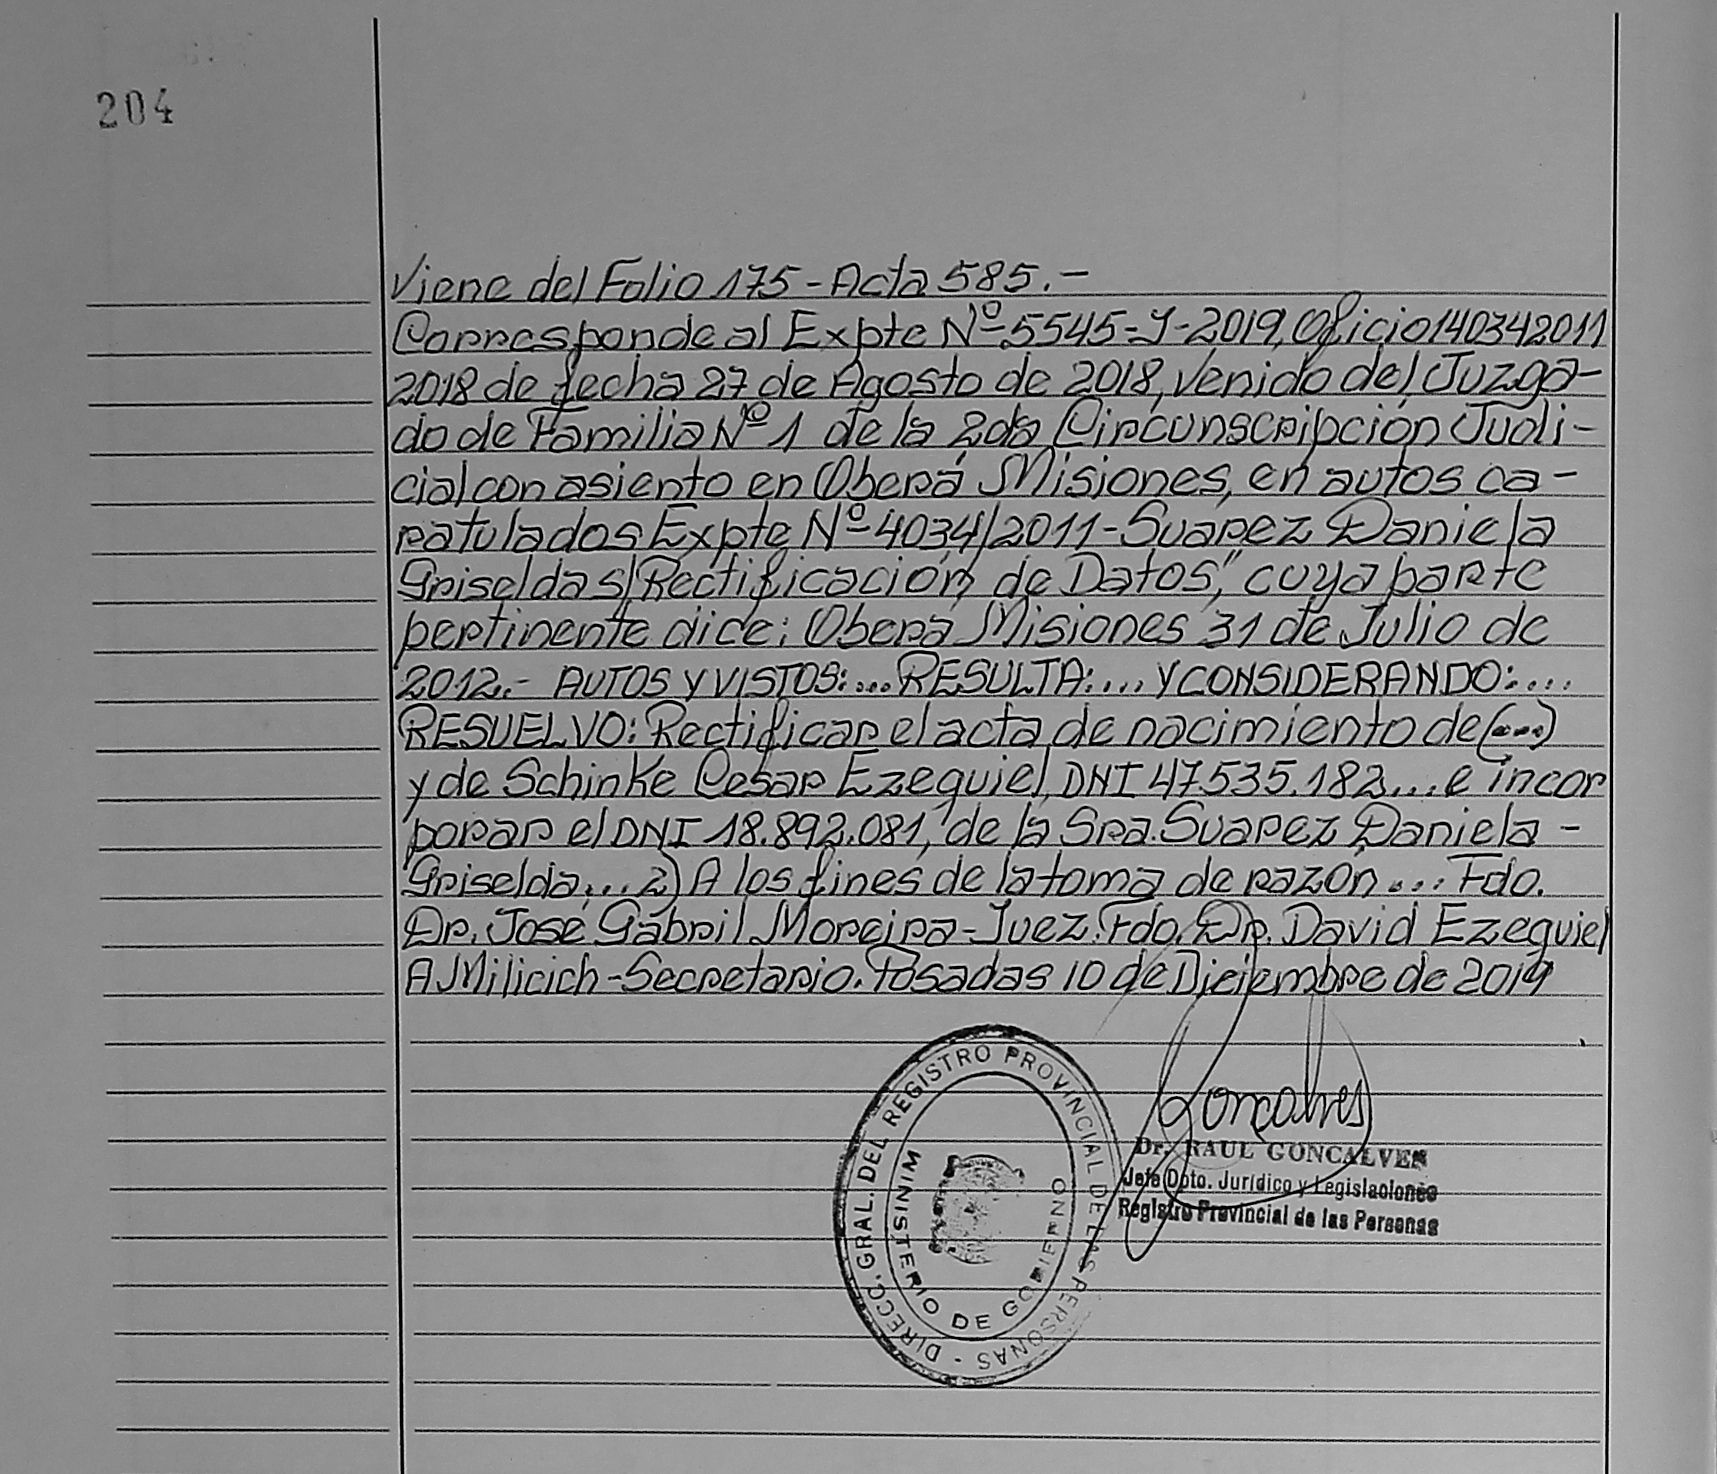 204
Viene del Folio 175 - Acta 585.-
Corresponde al Expte Nº 5545-J-2019, Oficio 140342011
2018 de fecha 27 de Agosto de 2018, venido del Juzga-
do de Familia Nº 1 de la 2da Circunscripción Judi-
cial con asiento en Oberá Misiones, en autos ca-
ratulados Expte Nº 4034/2011-Suarez Daniela
Griselda s/Rectificación de Datos", cuya parte
pertinente dice: Oberá Misiones 31 de Julio de
2012.- AUTOS Y VISTOS:... RESULTA:.... Y CONSIDERANDO:....
RESUELVO: Rectificar el acta de nacimiento de (...)
y de Schinke Cesar Ezequiel, DNI 47.535.182... e incor
porar el DNI 18.892.081, de la Sra. Suarez Daniela -
Griselda... 2) A los fines de la toma de razón... Fdo.
Dr. José Gabril Moreira-Juez. Fdo. Dr. David Ezequiel
A Milicich-Secretario. Posadas 10 de Diciembre de 2019
DIRECC. GRAL. DEL REGISTRO PROVINCIAL DE LAS PERSONAS -
MINISTERIO DE GOBIERNO
Goncalves
Dr. RAUL GONCALVES
Jefe Dpto. Jurídico y Legislaciones
Registro Provincial de las Personas